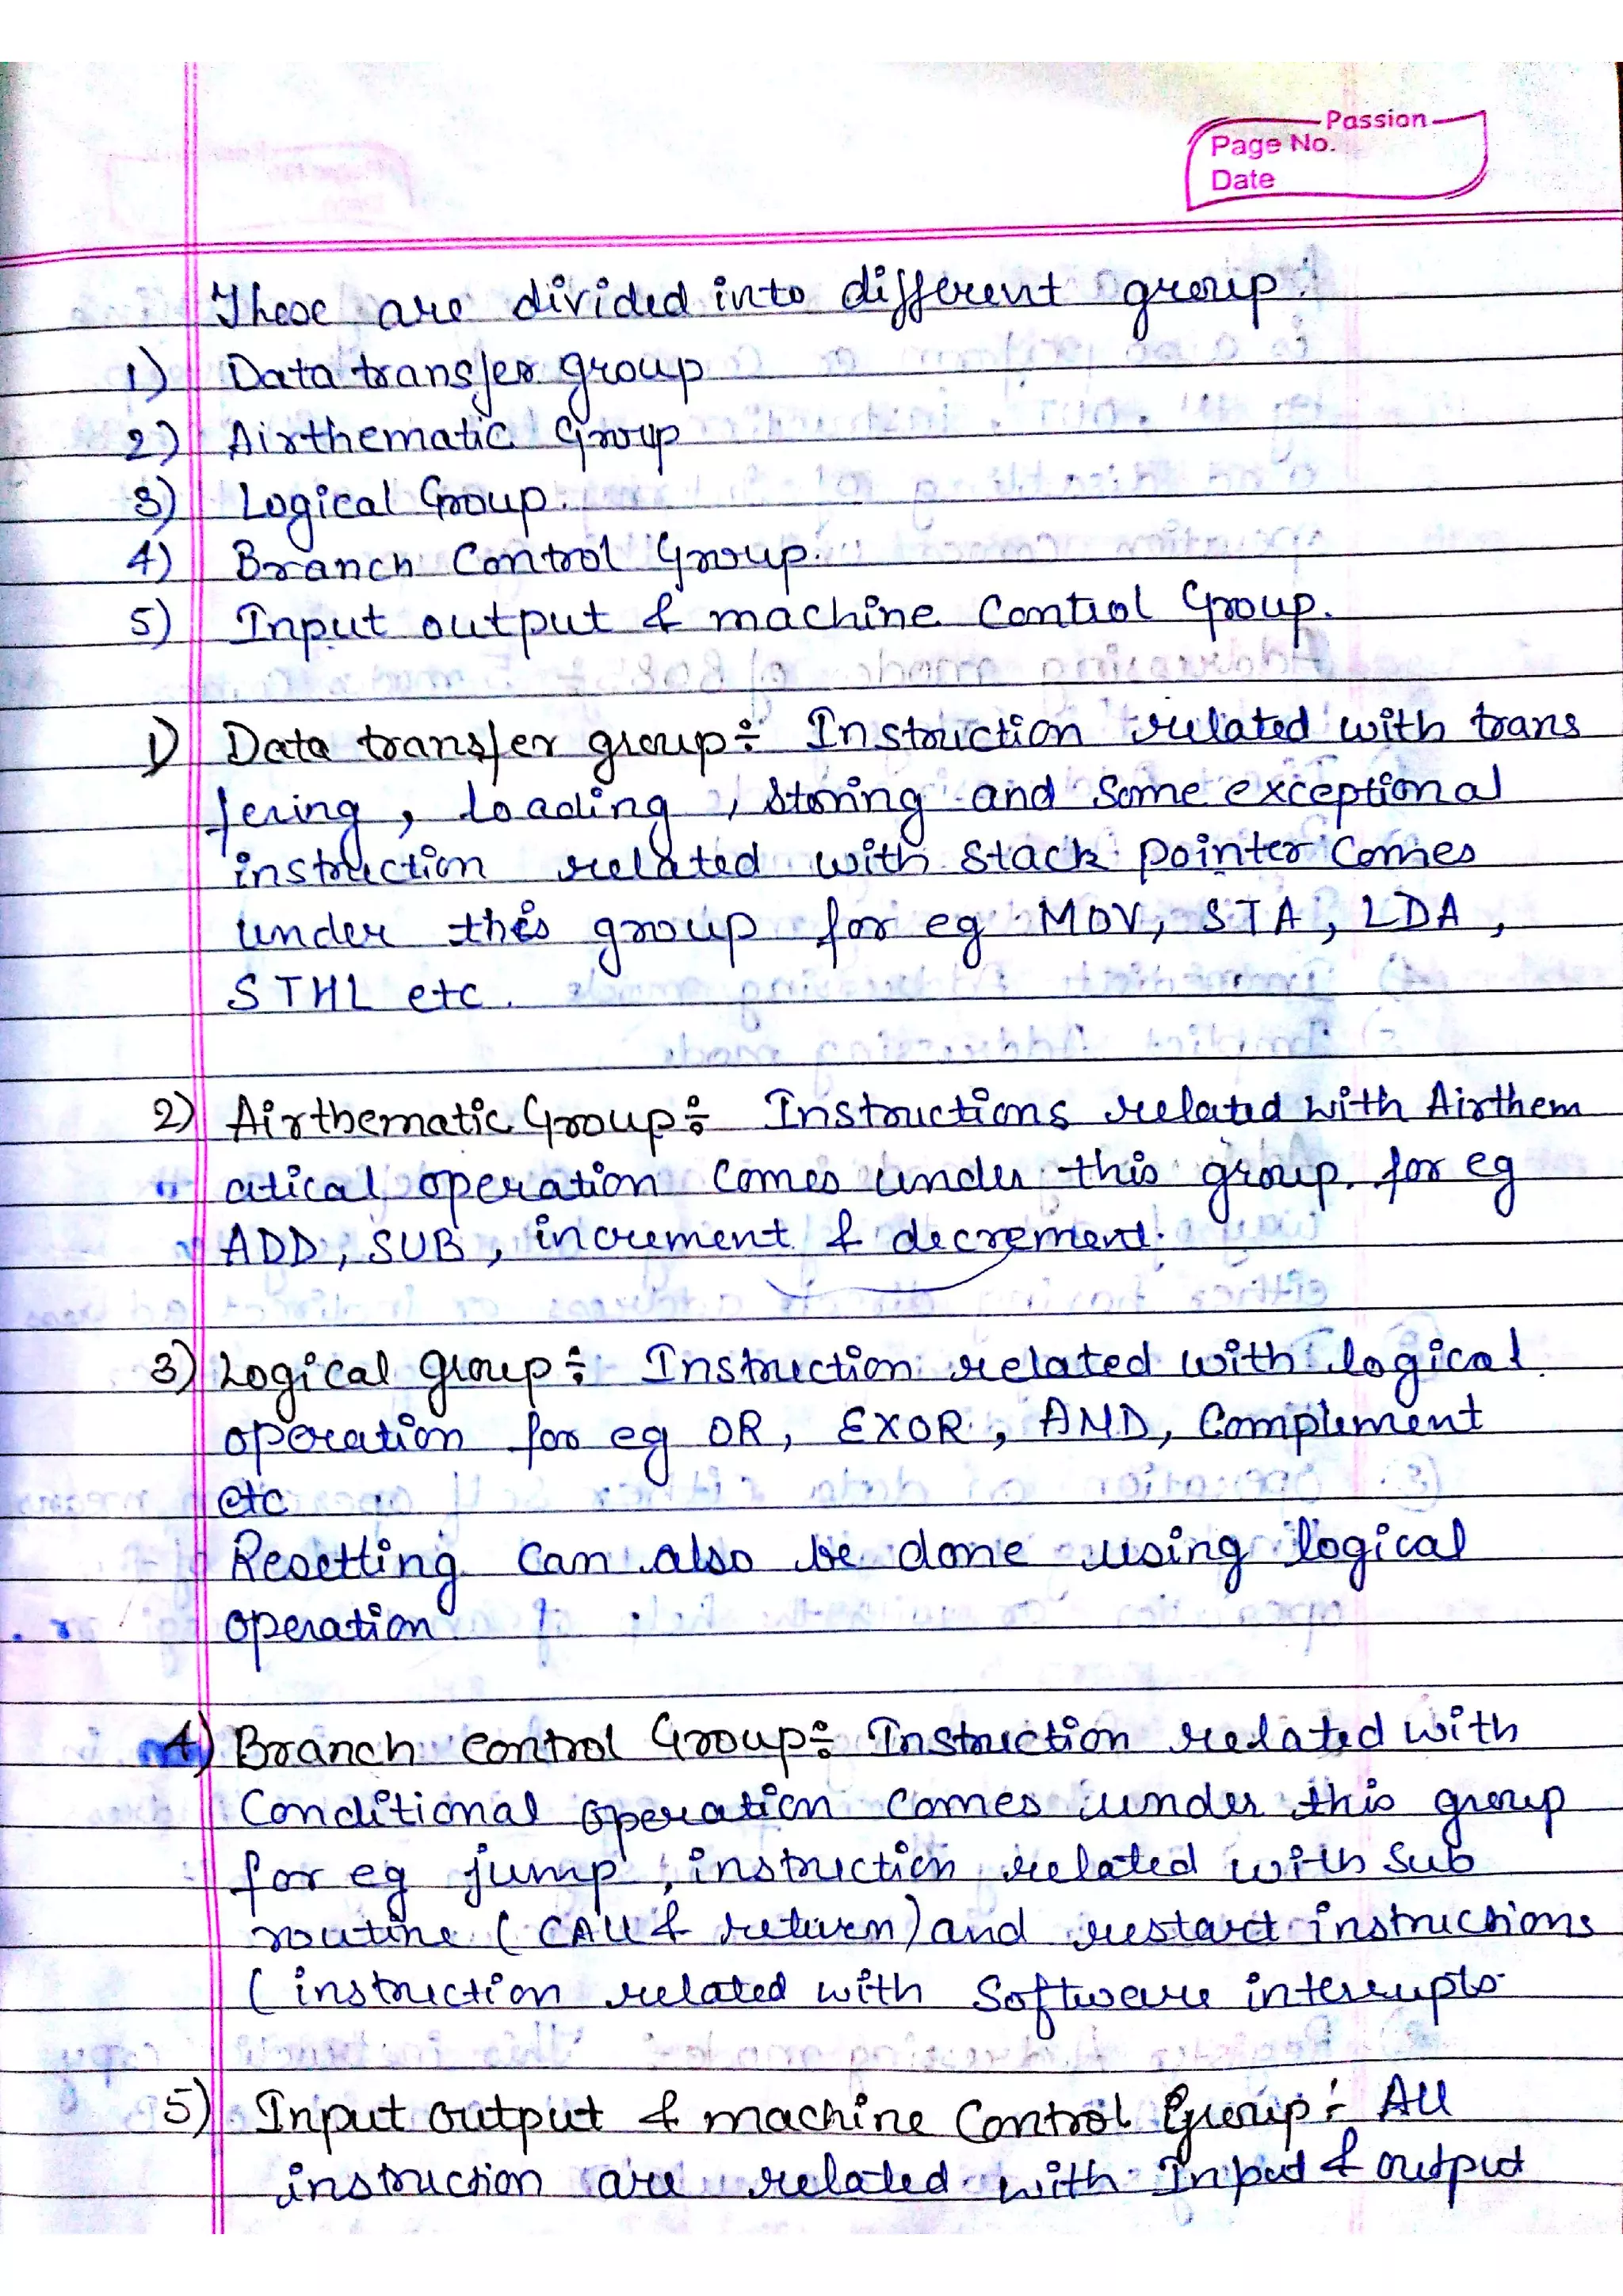 Passion
Page No.
Date
These are divided into different group.
1) Data transfer group
2) Airthematic Group
3) Logical Group.
4) Branch Control Group.
5) Input output & machine Control Group.
1) Data transfer group÷ Instruction related with trans
fering, loading, storing and some exceptional
instruction related with stack pointer comes
under this group for eg MOV, STA, LDA,
STHL etc.
2) Airthematic Group÷ Instructions related with Airthem
atical operation comes under this group. for eg
ADD, SUB, increment & decrement.
3) Logical group÷ Instruction related with logical
operation for eg OR, EXOR, AND, Complement
etc
Resetting can also be done using logical
operation
4) Branch control Group÷ Instruction related with
Conditional operation comes under this group
for eg jump, instruction related with sub
routine (CALL & return) and restart instructions
(instruction related with Software interrupts
5) Input output & machine Control Group÷ All
instruction are related with Input & output